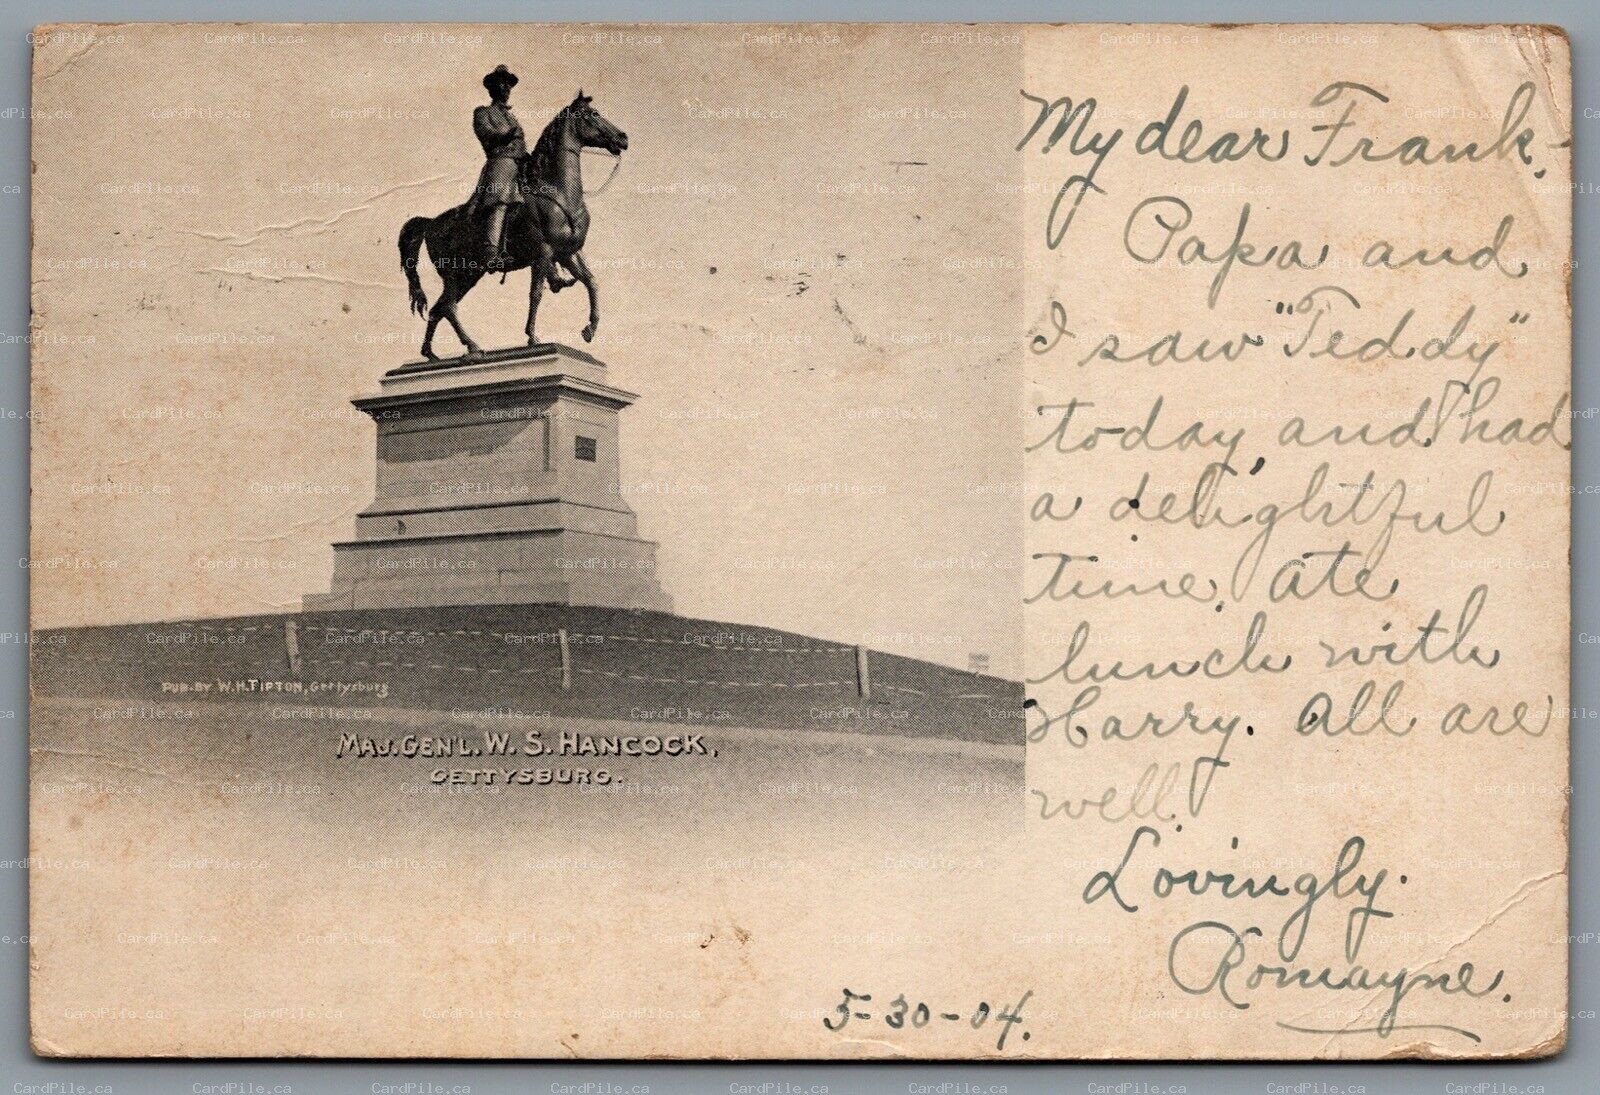 PUB. BY W. H. TIPTON, Gettysburg
MAJ. GEN'L. W. S. HANCOCK,
GETTYSBURG.
My dear Frank.
Papa and
I saw "Teddy"
today, and had
a delightful
time. Ate
lunch with
Harry. All are
well.
Lovingly.
Romayne.
5-30-04.
CardPile.ca